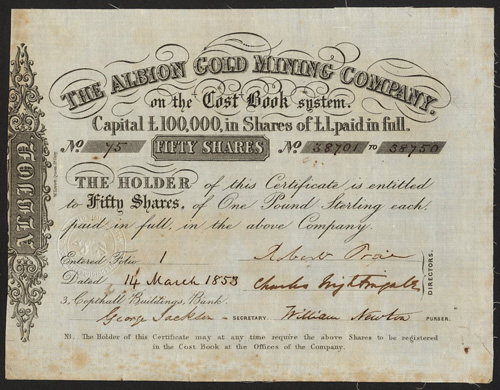 THE ALBION GOLD MINING COMPANY.
on the Cost Book system.
Capital £100,000, in Shares of £1. paid in full.
No 75 FIFTY SHARES No 38701 TO 38750
THE HOLDER of this Certificate is entitled
to Fifty Shares, of One Pound Sterling each,
paid in full, in the above Company.
Entered Folio 1 Robert
Dated 14 March 1853 Charles Nightingale
3, Copthall Buildings, Bank.
George Jackson SECRETARY. William Newton PURSER.
DIRECTORS.
NB. The Holder of this Certificate may at any time require the above Shares to be registered
in the Cost Book at the Offices of the Company.
ALBION